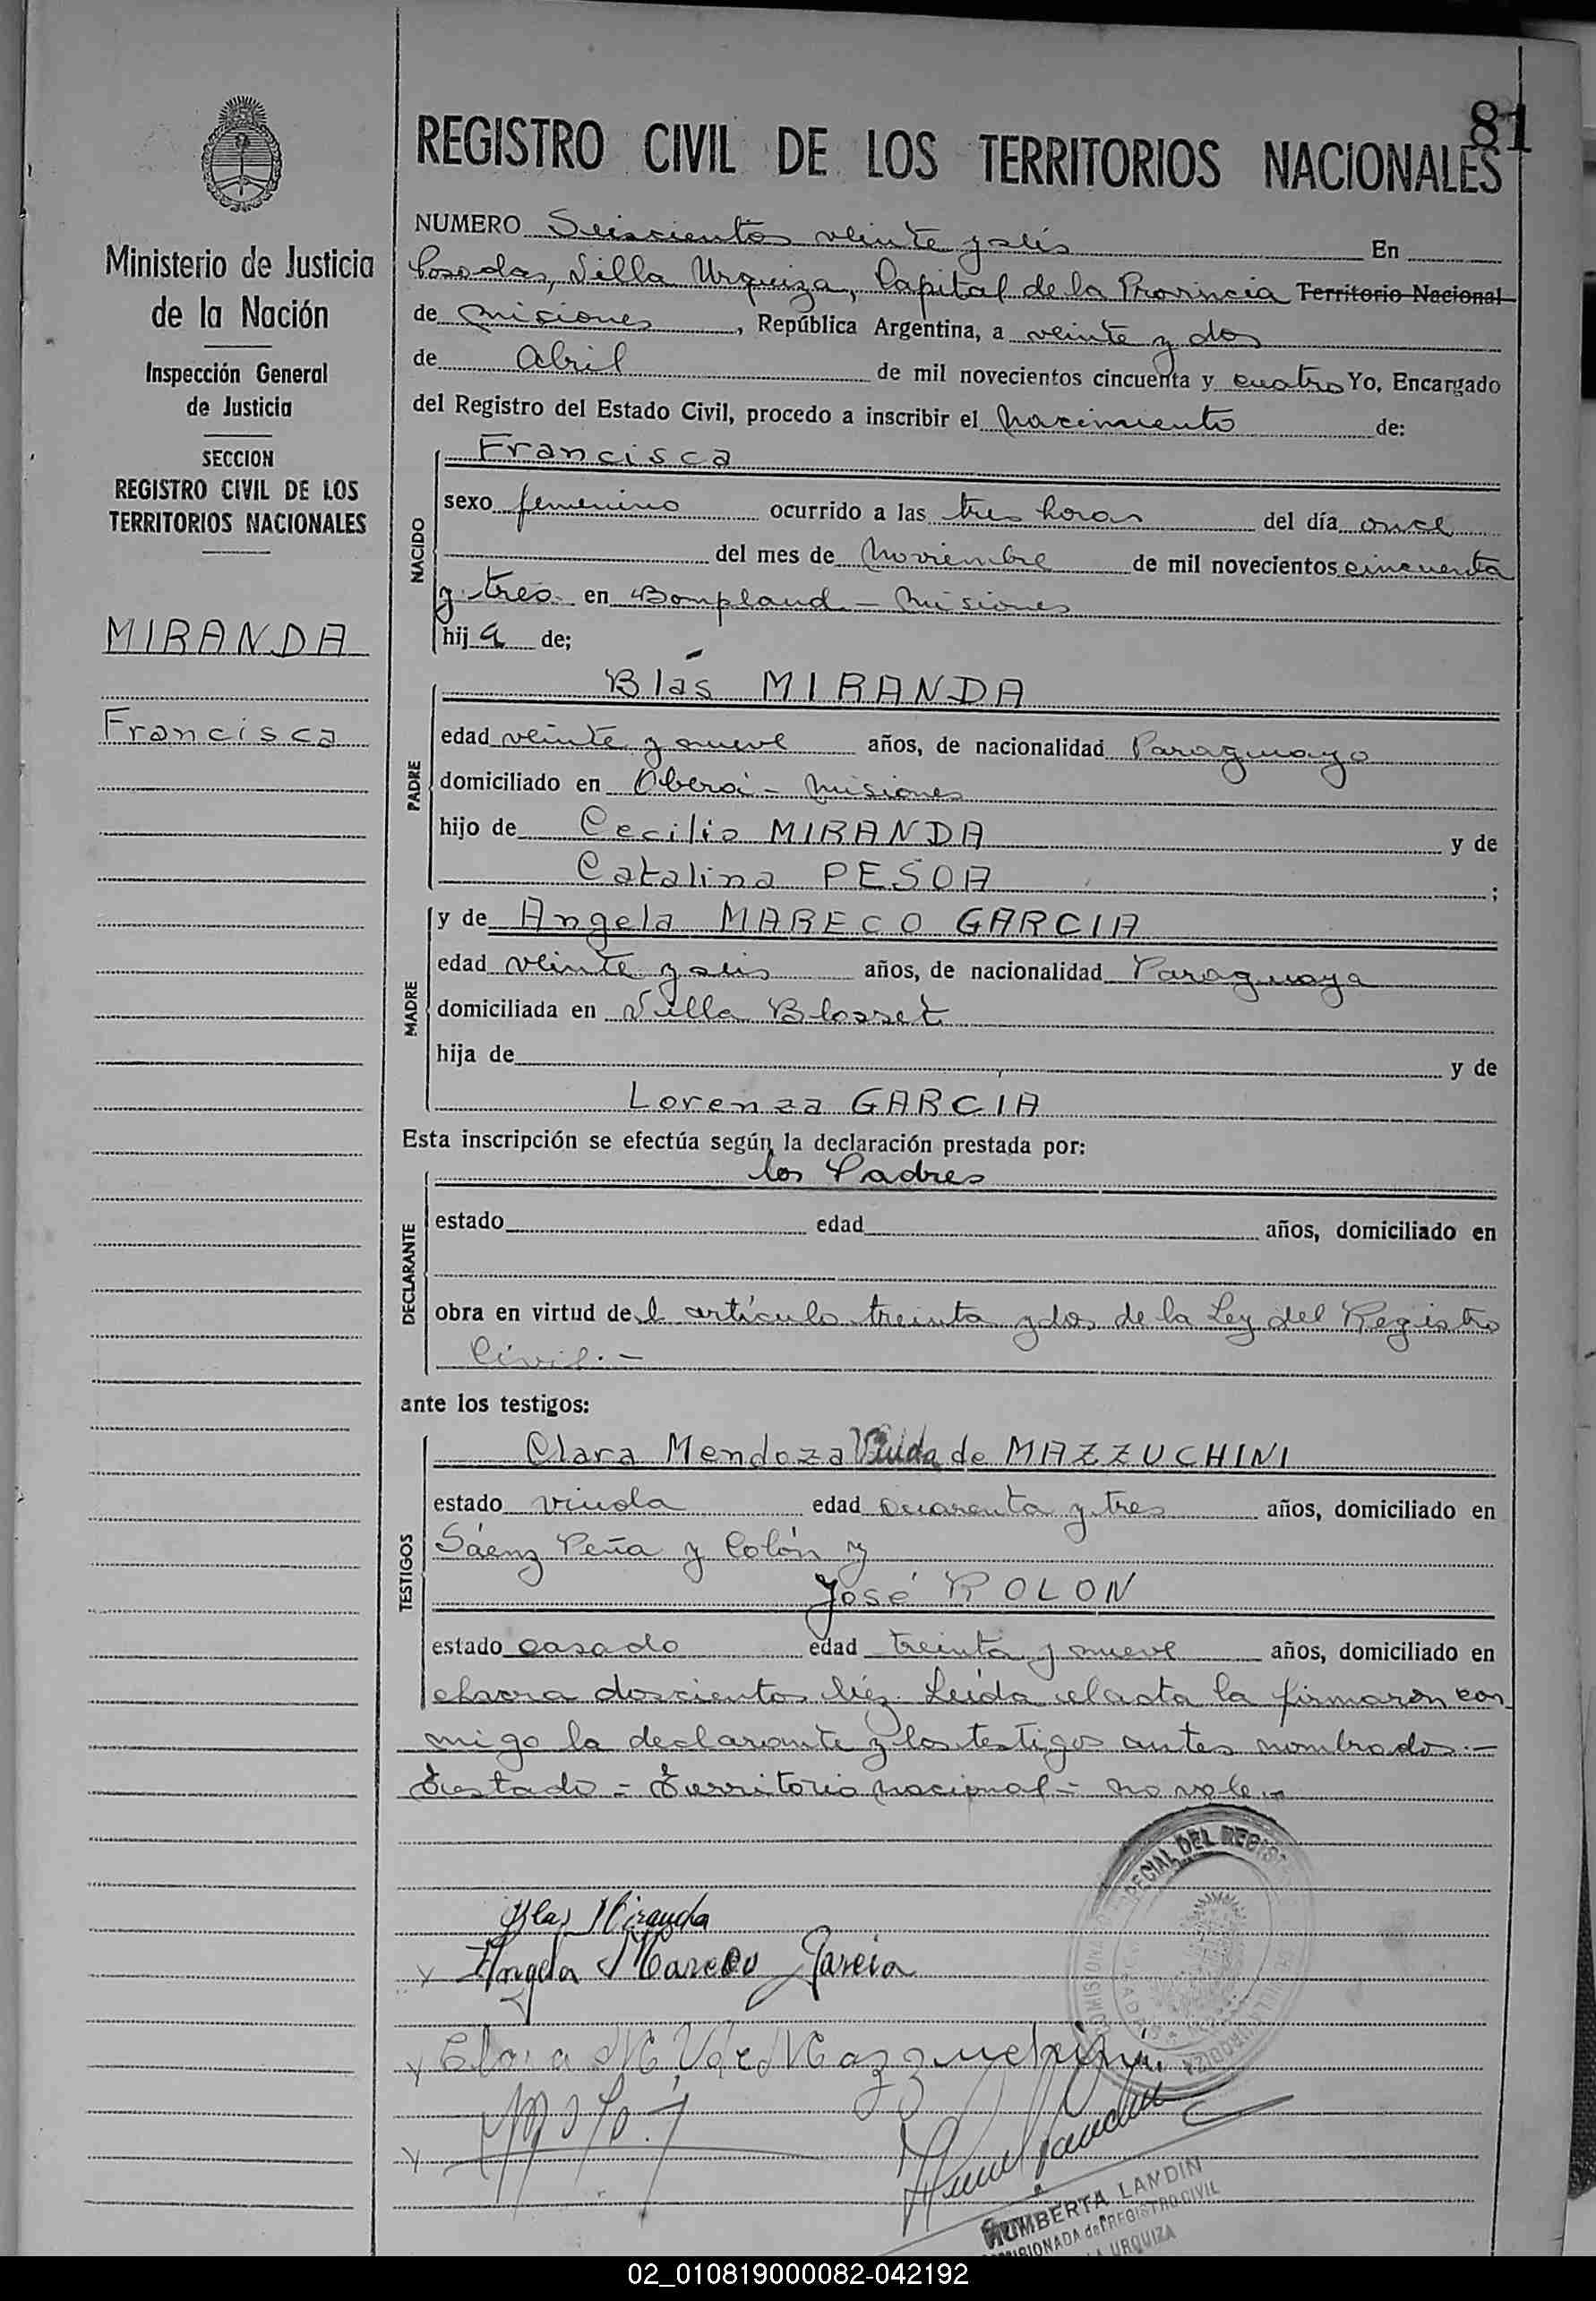 81
REGISTRO CIVIL DE LOS TERRITORIOS NACIONALES
Ministerio de Justicia
de la Nación
Inspección General
de Justicia
SECCION
REGISTRO CIVIL DE LOS
TERRITORIOS NACIONALES
MIRANDA
Francisca
NUMERO Seiscientos veinte y seis En
Posadas, Villa Urquiza, Capital de la Provincia Territorio Nacional
de Misiones, República Argentina, a veinte y dos
de Abril de mil novecientos cincuenta y cuatro Yo, Encargado
del Registro del Estado Civil, procedo a inscribir el Nacimiento de:
NACIDO
Francisca
sexo femenino ocurrido a las tres horas del día once
del mes de Noviembre de mil novecientos cincuenta
y tres en Bompland - Misiones
hija de;
PADRE
Blás MIRANDA
edad veinte y nueve años, de nacionalidad Paraguayo
domiciliado en Oberá - Misiones
hijo de Cecilio MIRANDA y de
Catalina PESOA ;
MADRE
y de Angela MARECO GARCIA
edad veinte y seis años, de nacionalidad Paraguaya
domiciliada en Villa Blosset
hija de y de
Lorenza GARCIA
Esta inscripción se efectúa según la declaración prestada por:
DECLARANTE
los Padres
estado edad años, domiciliado en
obra en virtud del artículo treinta y dos de la Ley del Registro
Civil.-
ante los testigos:
TESTIGOS
Clara Mendoza Viuda de MAZZUCHINI
estado viuda edad cuarenta y tres años, domiciliado en
Sáenz Peña y Colón y
José ROLON
estado casado edad treinta y nueve años, domiciliado en
chacra doscientos diez. Leída el acta la firmaron con
migo la declarante y los testigos antes nombrados.-
Testado = Territorio nacional = no vale.-
Blas Miranda
Angela Mareco Garcia
Clara M. V. de Mazzuchini
ECIAL DEL REGIS
HUMBERTA LANDIN
MISIONADA del REGISTRO CIVIL
URQUIZA
02_010819000082-042192